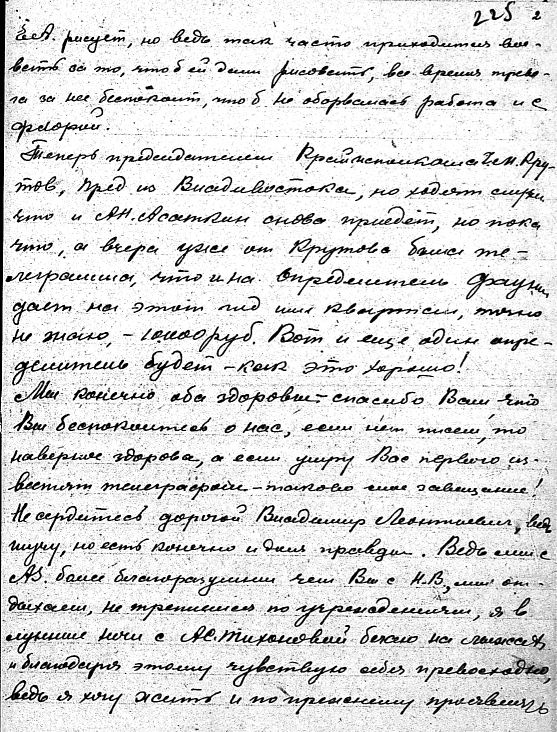 225 2
Е.А. рисует, но ведь так часто приходится вое-
вать за то, чтоб ей дали рисовать, все время трево-
га за нее беспокоит, чтоб не оборвалась работа и с
флорой.
Теперь председателем Крайисполкома Г.М. Кру-
тов, пред из Владивостока, но ходят слухи
что и А.Н. Асаткин снова приедет, но пока
что, а вчера уже от Крутова была те-
леграмма, что и на определитель фауны
дает на этот год или квартал, точно
не знаю, - 10.000 руб. Вот и еще один опре-
делитель будет - как это хорошо!
Мы конечно оба здоровы - спасибо Вам что
Вы беспокоитесь о нас, если нет писем, то
наверное здорова, а если умру Вас первого из-
вестят телеграфом - таково мое завещание!
Не сердитесь дорогой Владимир Леонтьевич, ведь
шучу, но есть конечно и доля правды. Ведь мы с
А.З. более благоразумны чем Вы с Н.В., мы от-
дыхаем, не треплемся по учреждениям, я в
лунные ночи с А.С. Тихоновой бегаю на лыжах
и благодаря этому чувствую себя превосходно,
ведь я хочу жить и по прежнему проявлять